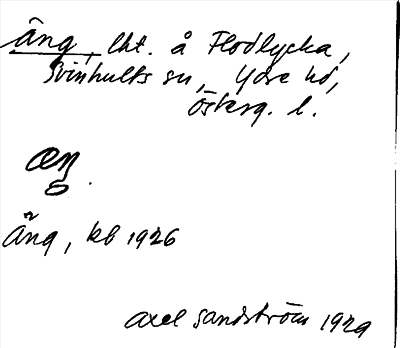 äng, lht. å Flodlycka,
Svinhults sn, Ydre hd,
Österg. l.
Äng, kb 1926
Axel Sandström 1929